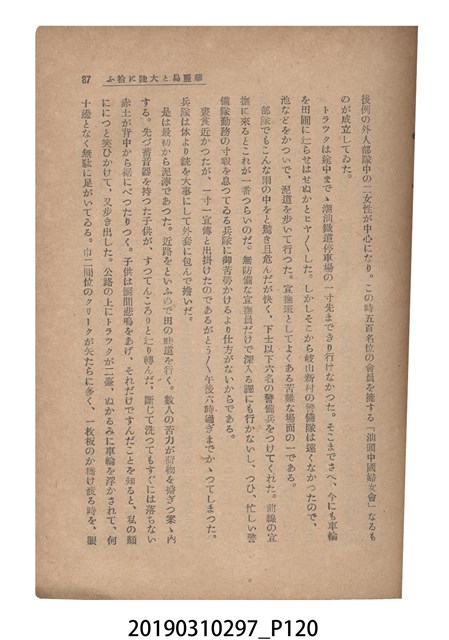 87
後例の外人部隊中の二女性が中心になり。この時五百名位の會員を擁する「汕頭中國婦女會」なるも
のが成立してゐた。
トラツクは途中まで、潮汕鐵道停車場の一寸先まできり行けなかつた。そこまでさへ、今にも車輪
を田圃に辷らせはせぬかとヒヤ〳〵した。しかしそこから岐山新村の警備隊は遠くなかつたので、
池などをかついで、泥道を歩いて行つた。宣撫班としてよくある苦難な場面の一である。
部隊でもこんな雨の中をと驚き且危んだが快く、下士以下六名の警備兵をつけてくれた。前線の宣
撫に來るとこれが一番つらいのだ。無防備な宣撫員だけで深入る譯にも行かないし、つひ、忙しい警
備隊勤務の寸暇を息つてゐる兵隊に御苦勞かけるより仕方がないからである。
裏貧近かつたが、一寸一宣傳と出掛けたのであるがとう〳〵午後六時過ぎまでかゝつてしまつた。
兵隊は体より銃を大事にして外套に包んで濟いだ。
是は最初から泥濘であつた。近路をといふので田の畦道を行く。數人の苦力が荷物を擔ぎつ案ゝ内
する。先づ蓄音器を持つた子供が、すつてんころりと辷り轉んだ。斷じて洗つてもすぐには落ちない
赤土が背中から裾にべつたりつく。子供は瞬間悲鳴をあげ、それだけですんだことを知ると、私の顔
ににつと笑ひかけて、又歩き出した。公路の上にトラツクが二臺、ぬかるみに車輪を浮かされて、何
十邊となく無駄に足がいてゐる。巾二間位のクリークが矢たらに多く、一枚板のか橋け渡る時を、眼
20190310297_P120